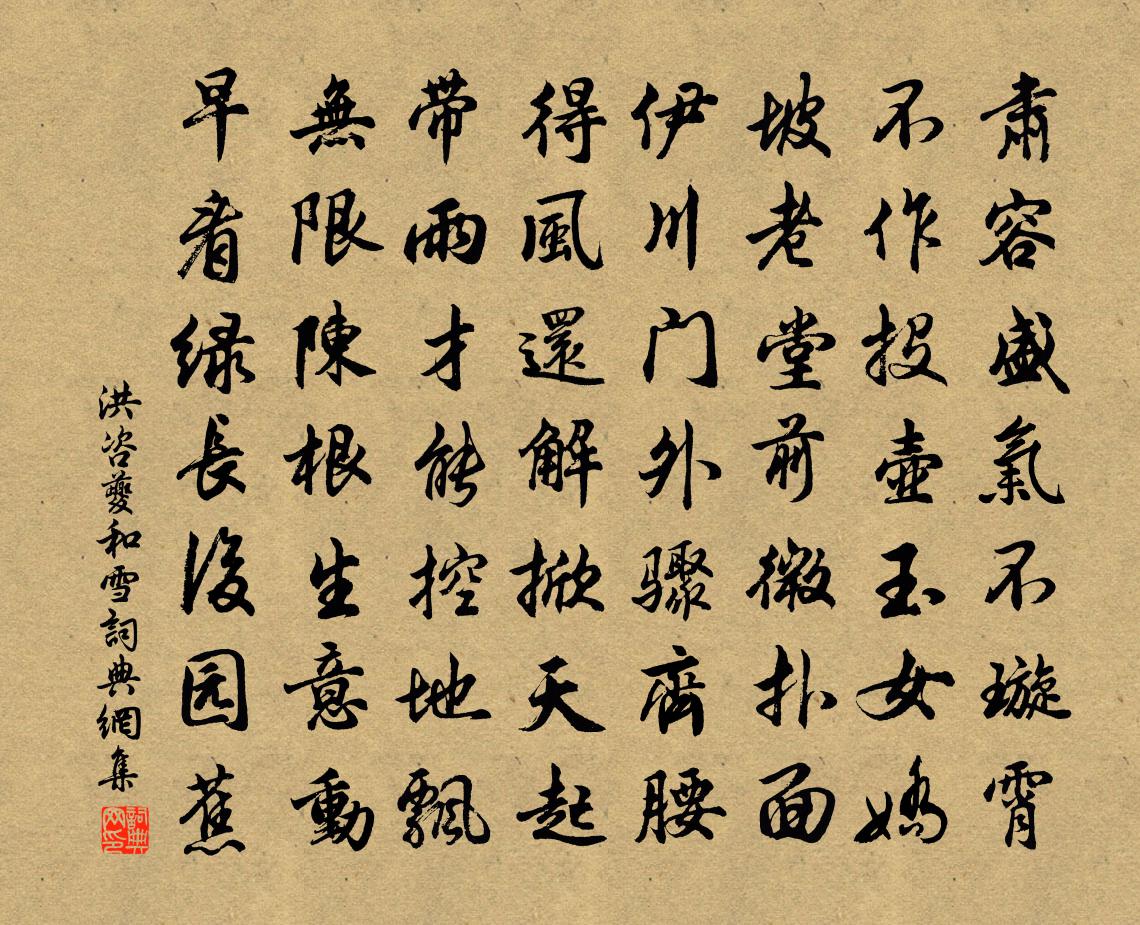 肅容盛氣不璇霄
不作投壺玉女嬌
坡老堂前微扑面
伊川门外驟齊腰
得風還解掀天起
带雨才能控地飄
無限陳根生意動
早看绿長後园蕉
洪咨夔和雪詞典網集
詞典网印